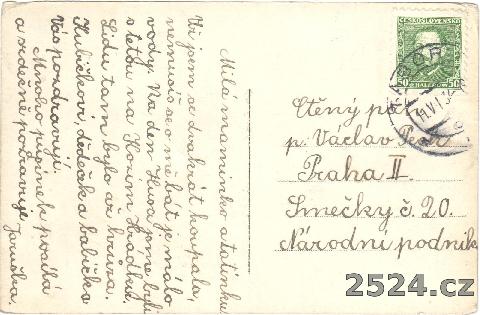 Milá maminko a tatínku
Už jsem se dvakrát koupala,
nemusíte se o mě bát je málo
vody. Na den Husa jsme byli
s tetou na Horním Hradku,
Lidu tam bylo až hrůza.
Kubíčkovi, dědečka a babička
Vás pozdravují.
Mnoho pusinek posílá
a srdečně pozdravuje
Jaruška.
ČESKOSLOVENSKO
50 50
Ctěný pán
p. Václav
Praha II
Smečky č. 20.
Národní podnik
2524.cz